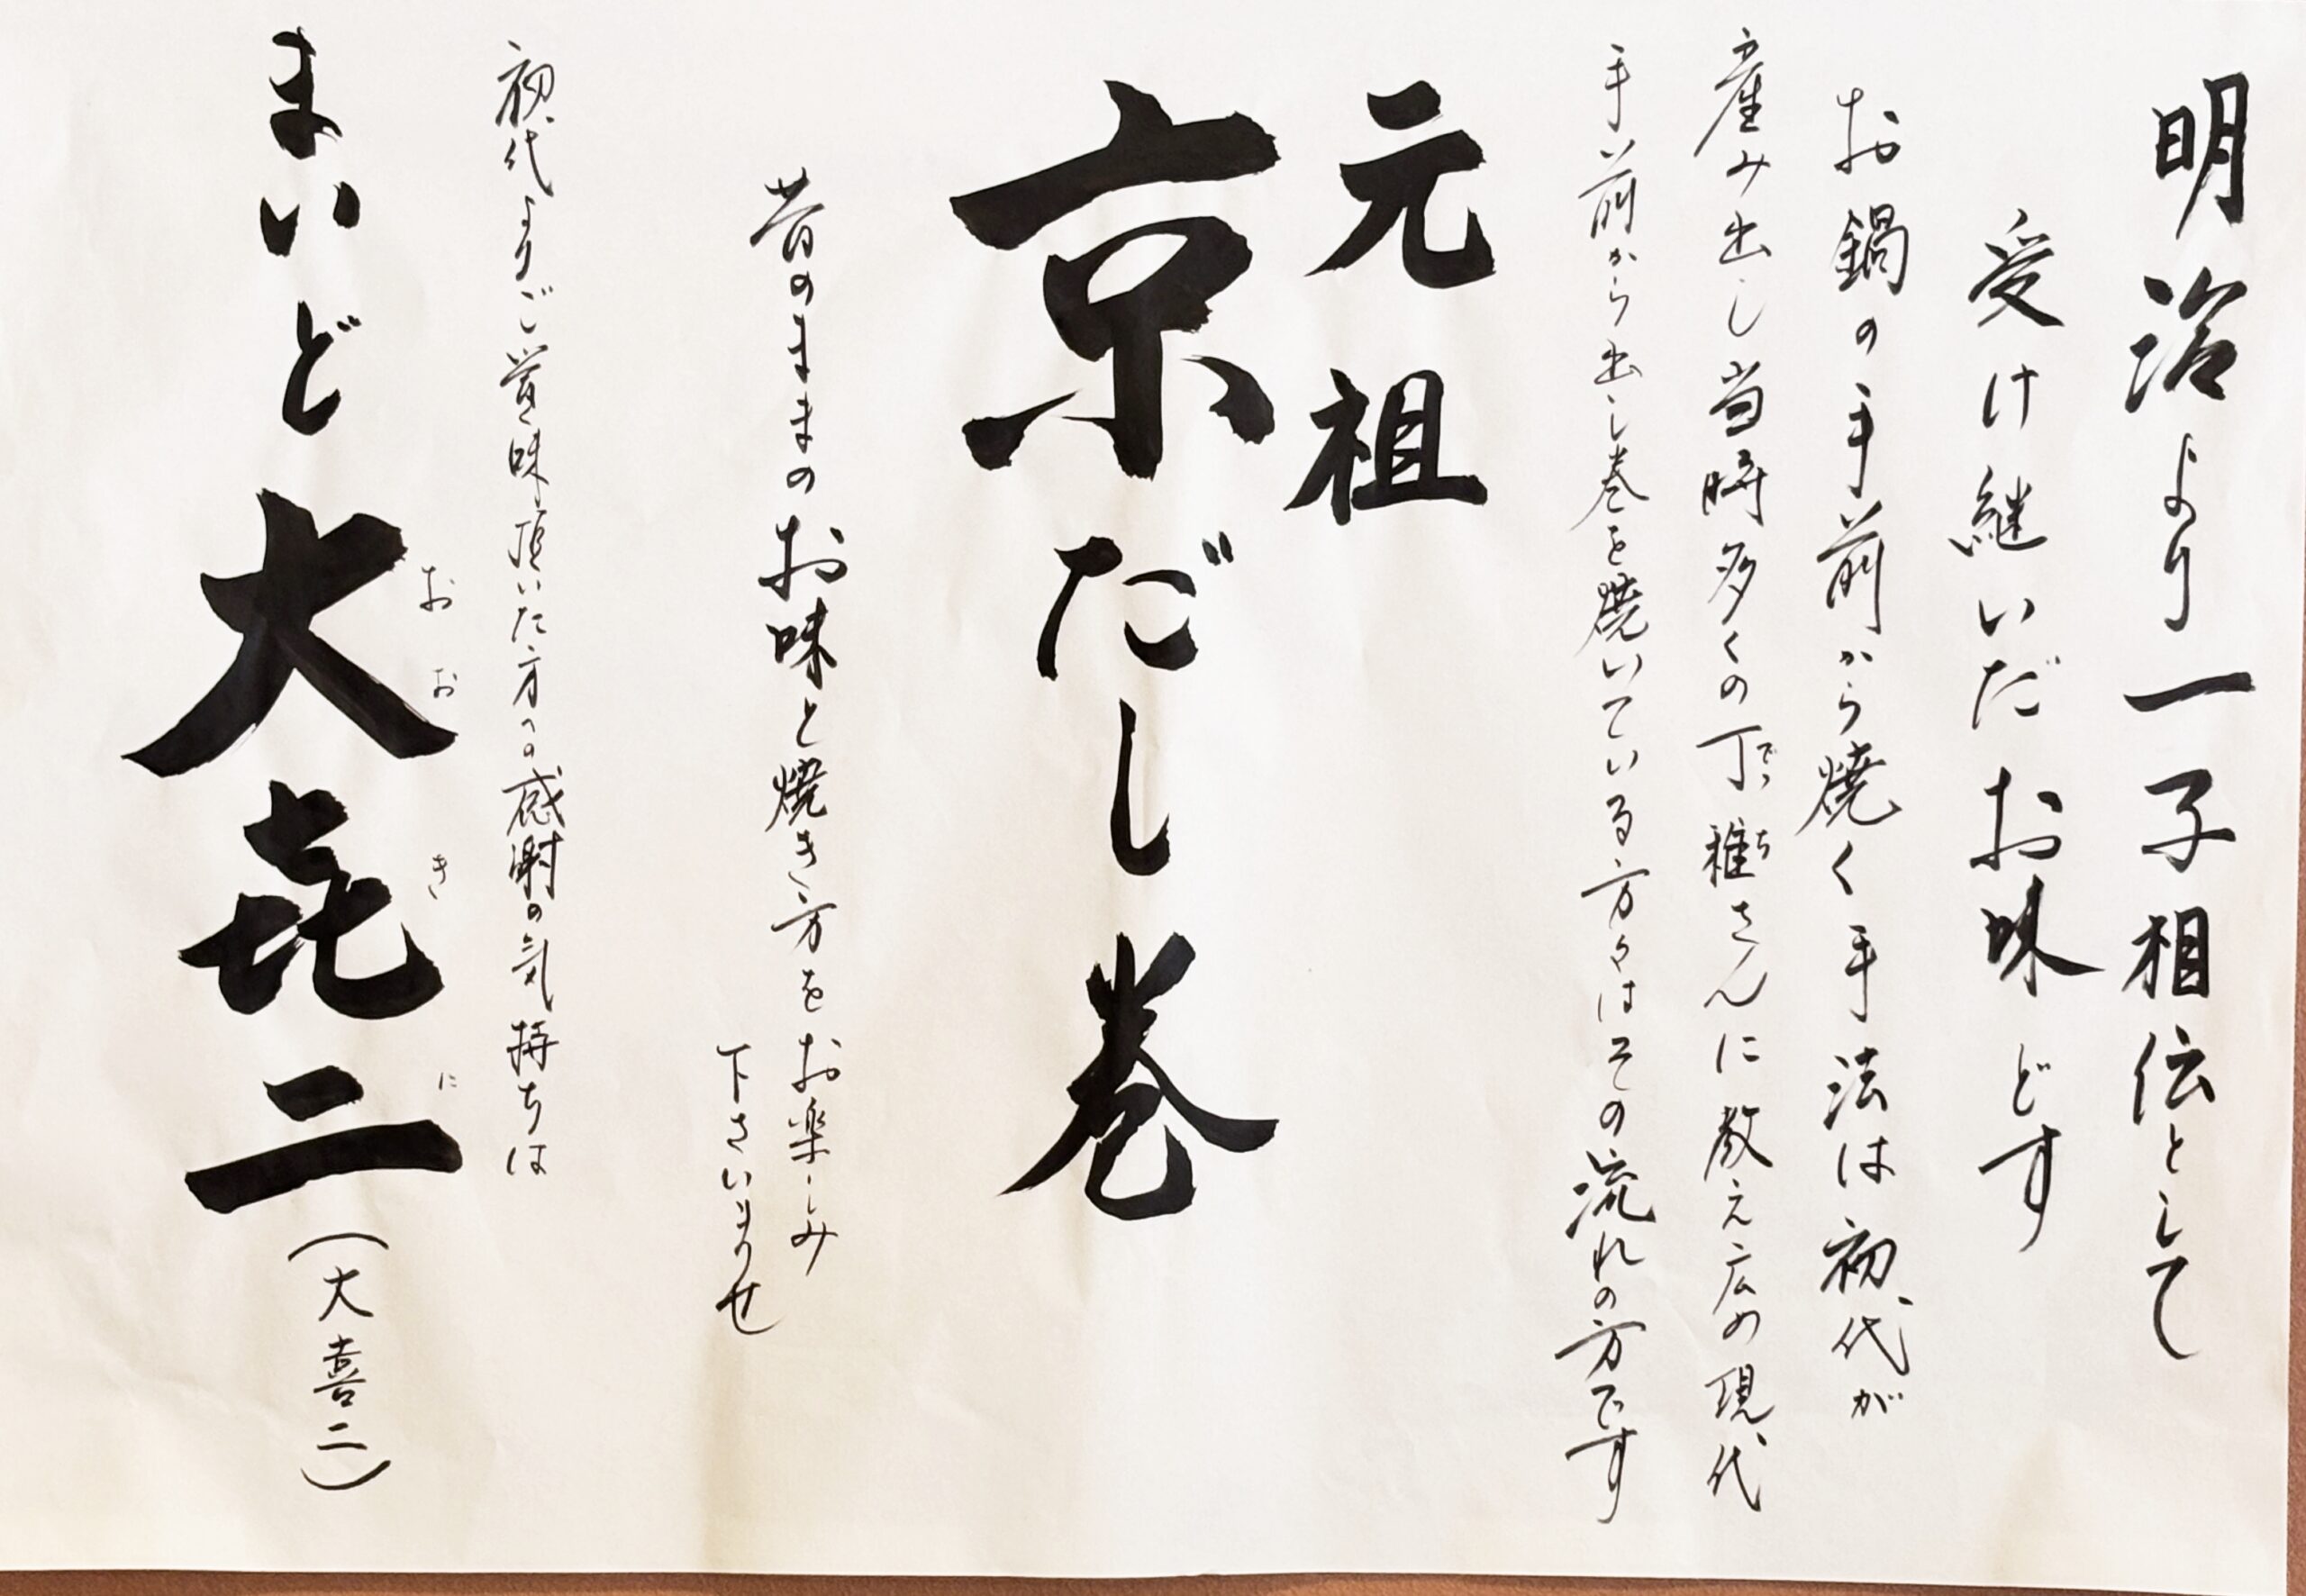 明治より一子相伝として
受け継いだお味どす
お鍋の手前から焼く手法は初代が
産み出し当時多くの丁稚さんに教え広め現代
でっち
手前から出し巻を焼いている方々はその流れの方です
元祖
京だし巻
昔のままのお味と焼き方をお楽しみ
下さいませ
初代よりご賞味頂いた方への感謝の気持ちは
まいど大㐂二
おおきに
（大喜二）